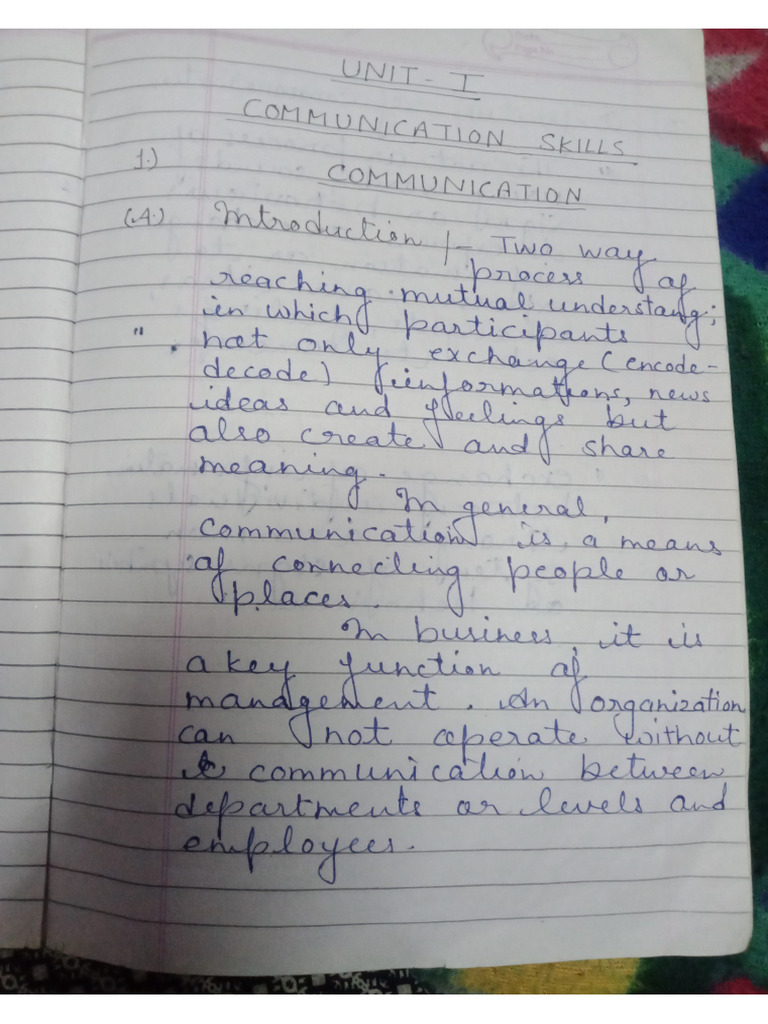 UNIT - I
COMMUNICATION SKILLS
1.)
COMMUNICATION
(A.) Introduction :- Two way
process of
reaching mutual understang;
in which participants
" . not only exchange (encode-
decode) informations, news
ideas and feelings but
also create and share
meaning.
In general,
communication is a means
of connecting people or
places.
In business, it is
a key function of
management. An organization
can not operate without
communication between
departments or levels and
employees.